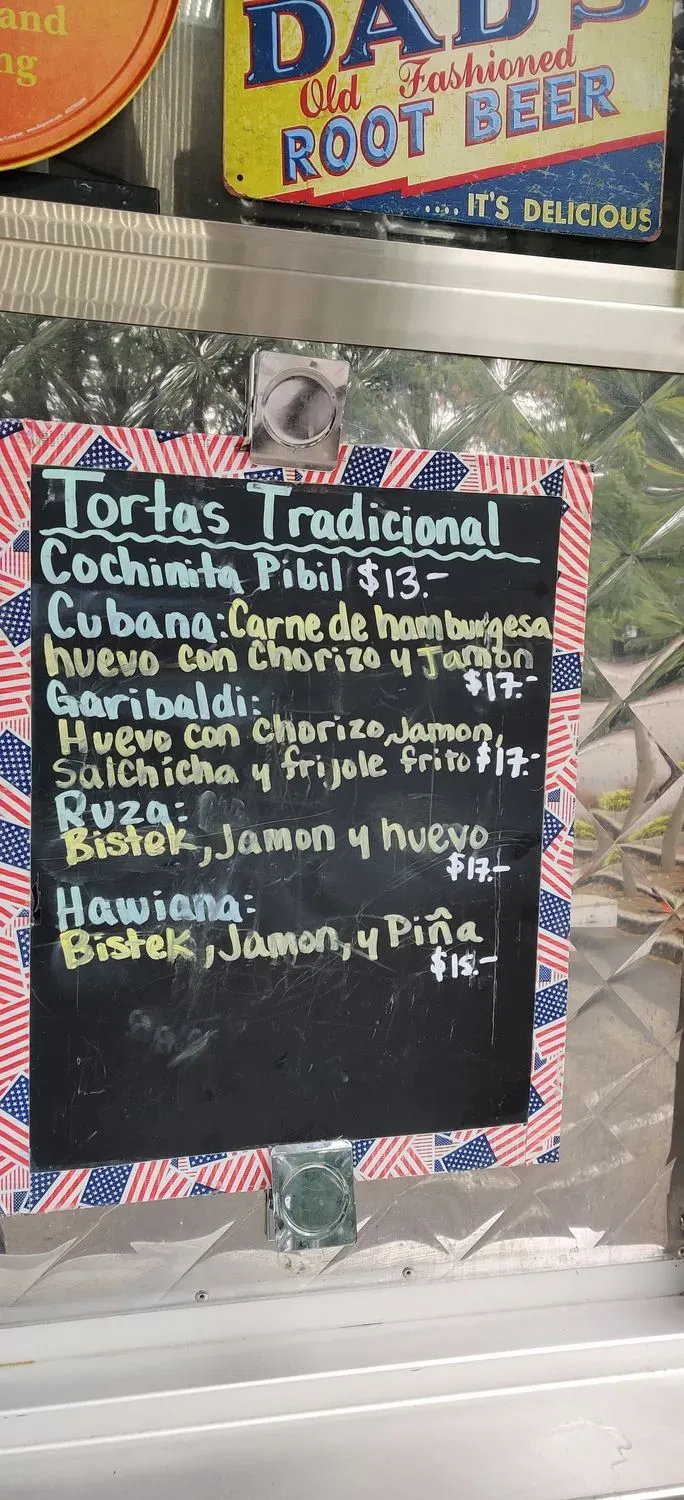 and
ng
DAD'S
Old Fashioned
ROOT BEER
.... IT'S DELICIOUS
Tortas Tradicional
Cochinita Pibil $13.-
Cubana: Carne de hamburgesa
huevo con Chorizo y Jamon
$17.-
Garibaldi:
Huevo con Chorizo, Jamon,
Salchicha y frijole frito $17.-
Ruza:
Bistek, Jamon y huevo
$17.-
Hawiana:
Bistek, Jamon, y Piña
$15.-